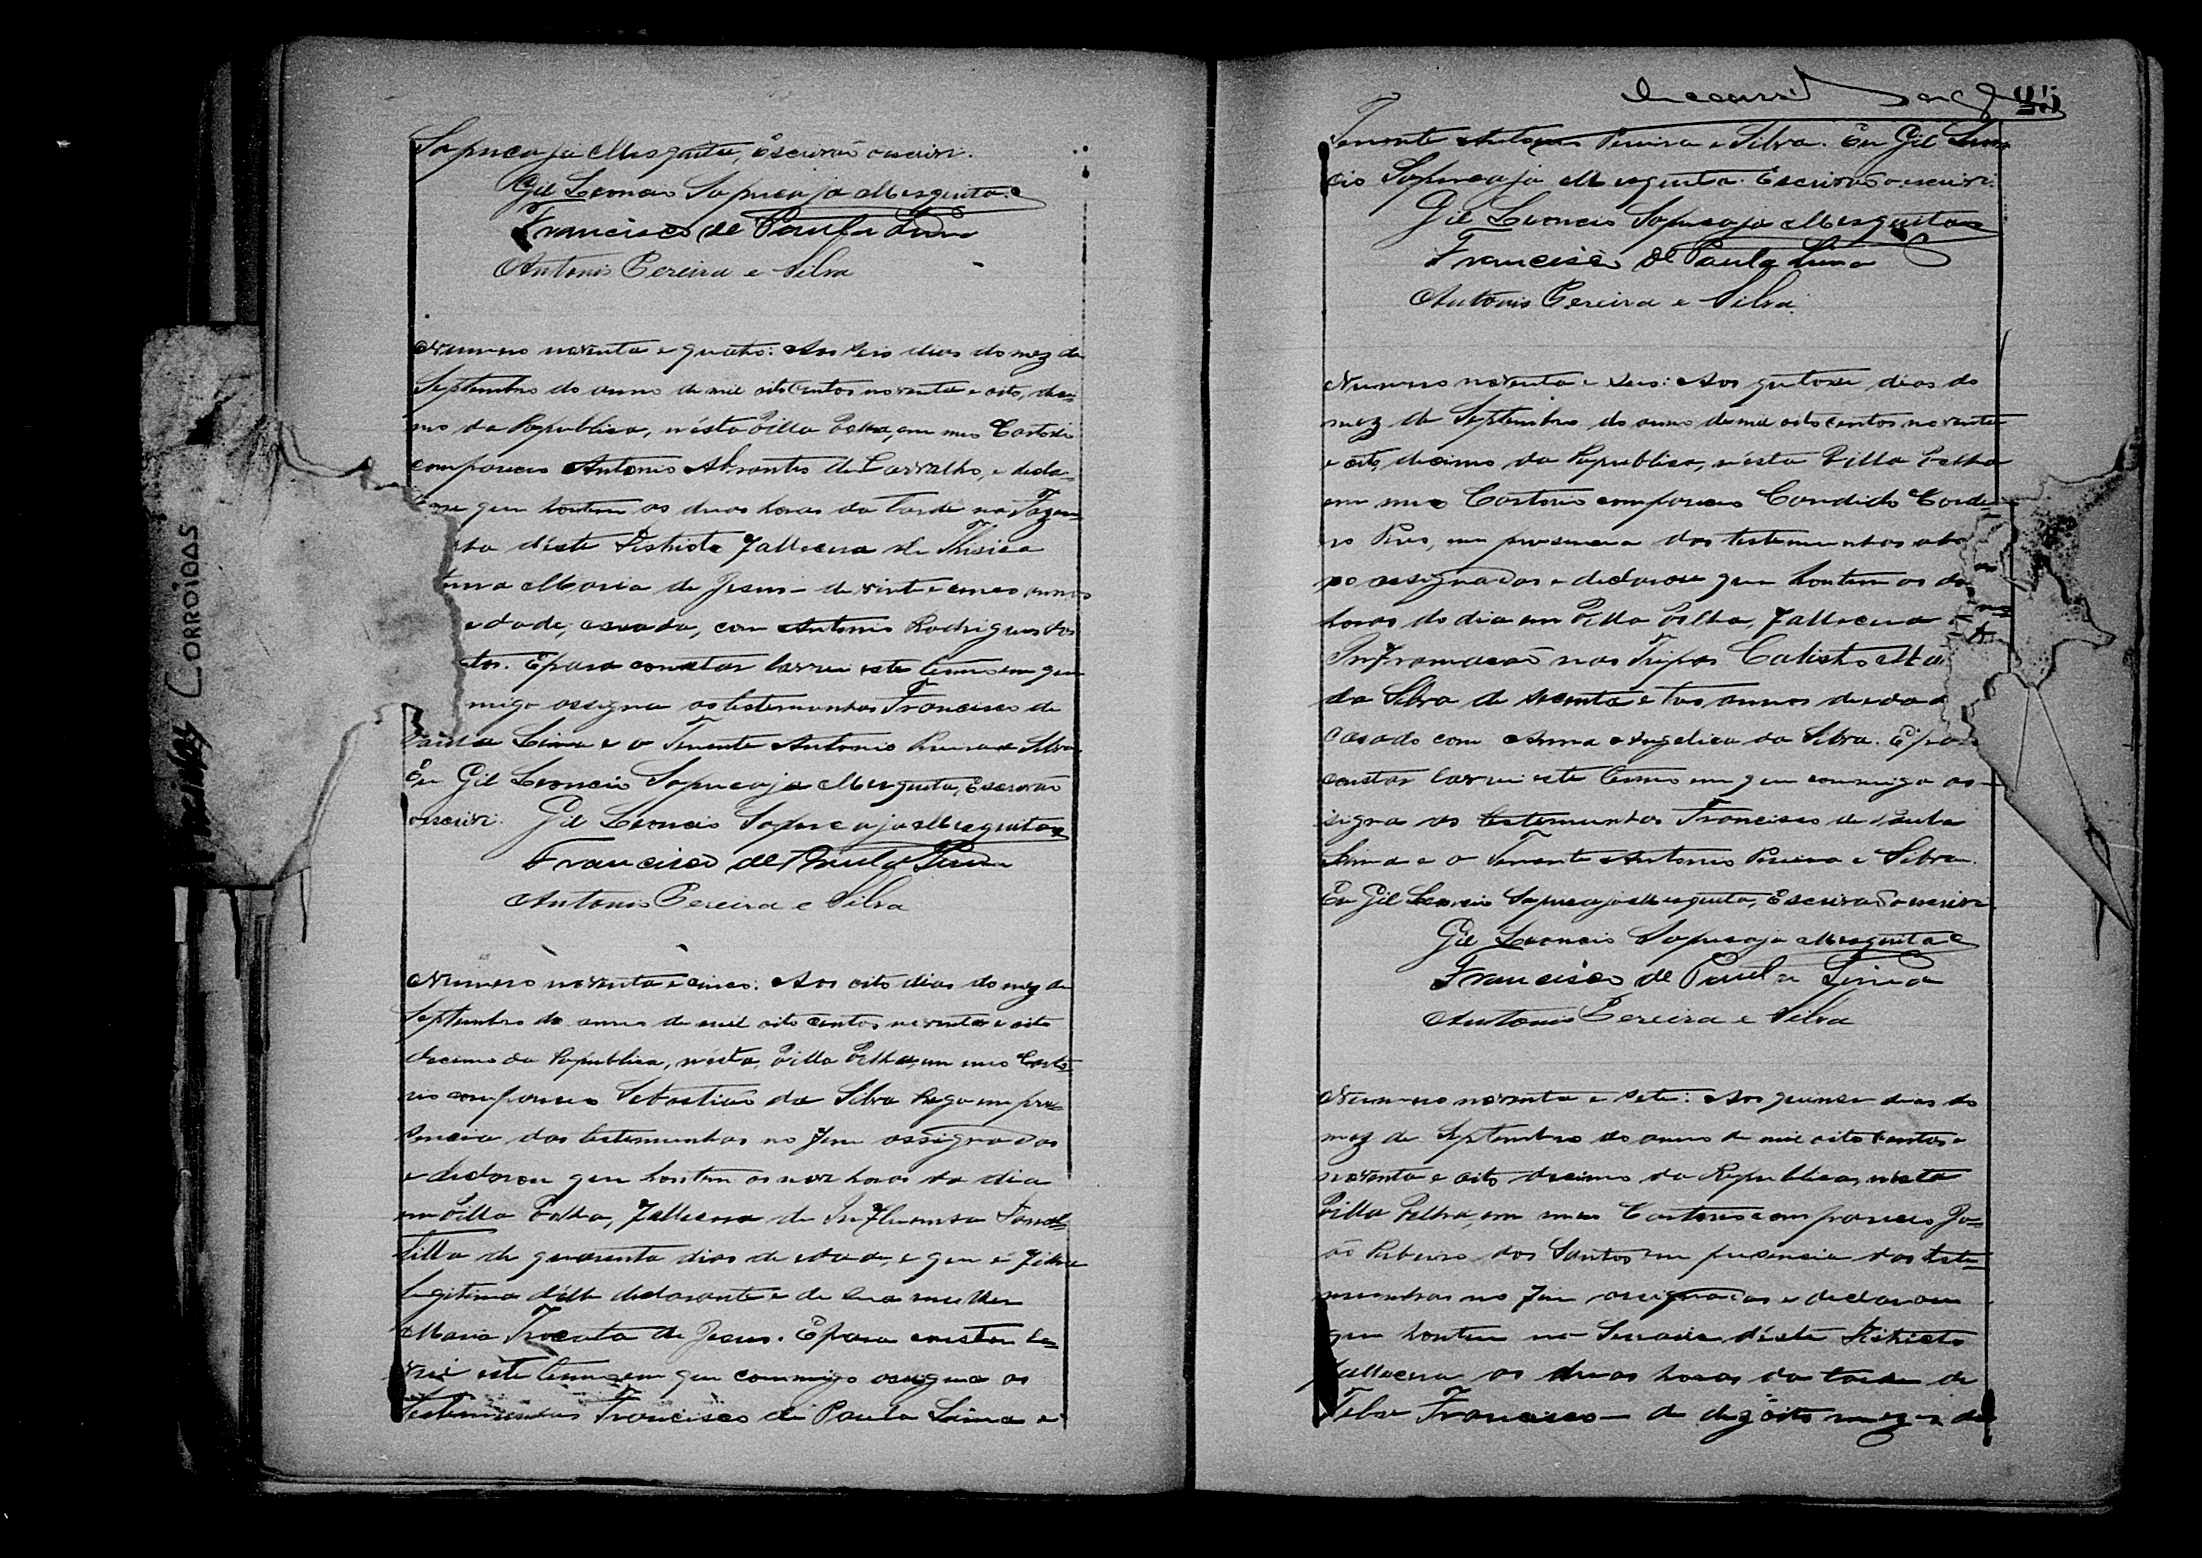 Sapucaja Mesquita, Escrivão o escrivi.
Gil Leoncio Sapucaja Mesquita
Francisco de Paula Lima
Antonio Pereira e Silva
Numero noventa e quatro: Aos seis dias do mez de
Septembro do anno de mil oito centos noventa e oito, deci-
mo da Republica, n'ésta Villa Velha, em meo Cartorio
compareceo Antonio Abrantes de Carvalho, e decla-
rou que hontem as duas horas da tarde na Fazen-
d'éste Districto fallecera de Thisica
Maria de Jesus - de vinte e cinco annos
edade, casada, com Antonio Rodrigues dos
tos. E para constar lavrei este termo em que
migo assigna as testemunhas Francisco de
Paula Lima e o Tenente Antonio Pereira e Silva
Eu Gil Leoncio Sapucaja Mesquita, Escrivão
o escrivi. Gil Leoncio Sapucaja Mesquita
Francisco de Paula Lima
Antonio Pereira e Silva
Numero noventa e cinco: Aos oito dias do mez de
Septembro do anno de mil oito centos noventa e oito
decimo da Republica, n'ésta Villa Velha, em meo Carto-
rio compareceo Sebastião da Silva Rego em pre-
sencia das testemunhas no fim assignadas
e declarou que hontem as nove horas do dia
em Villa Velha, fallecera de Influensa
de quarenta dias de edade, e que é filha
legitima d'élle declarante e de sua mulher
Maria de Jesus. E para constar la-
vrei este termo em que commigo assigna as
testemunhas Francisco de Paula Lima e
25
Tenente Antonio Pereira e Silva. Eu Gil Leon-
cio Sapucaja Mesquita. Escrivão o escrivi.
Gil Leoncio Sapucaja Mesquita
Francisco de Paula Lima
Antonio Pereira e Silva
Numero noventa e seis: Aos quatorze dias do
mez de Septembro do anno de mil oito centos noventa
e oito, decimo da Republica, n'ésta Villa Velha
em meo Cartorio compareceo Candido Cordei-
ro Pires, em presencia das testemunhas aba
xo assignadas e declarou que hontem as
horas do dia em Villa Velha, fallecera
Inframação nas Tripas Calisto
da Silva de secenta e tres annos de edade
Casado com Anna Angelica da Silva. E para
constar lavrei este termo em que commigo as-
signa as testemunhas Francisco de Paula
Lima e o Tenente Antonio Pereira e Silva.
Eu Gil Leoncio Sapucaja Mesquita, Escrivão o escrivi
Gil Leoncio Sapucaja Mesquita
Francisco de Paula Lima
Antonio Pereira e Silva
Numero noventa e sete: Aos quinse dias do
mez de Septembro do anno de mil oito centos e
noventa e oito decimo da Republica, n'ésta
Villa Velha, em meo Cartorio compareceo Jo-
ão Ribeiro dos Santos em presencia das teste-
munhas no fim assignadas e declarou
que hontem na d'éste Districto
fallecera as duas horas da tarde de
Febre Francisco - de dezoito mezes de
CORROIDAS